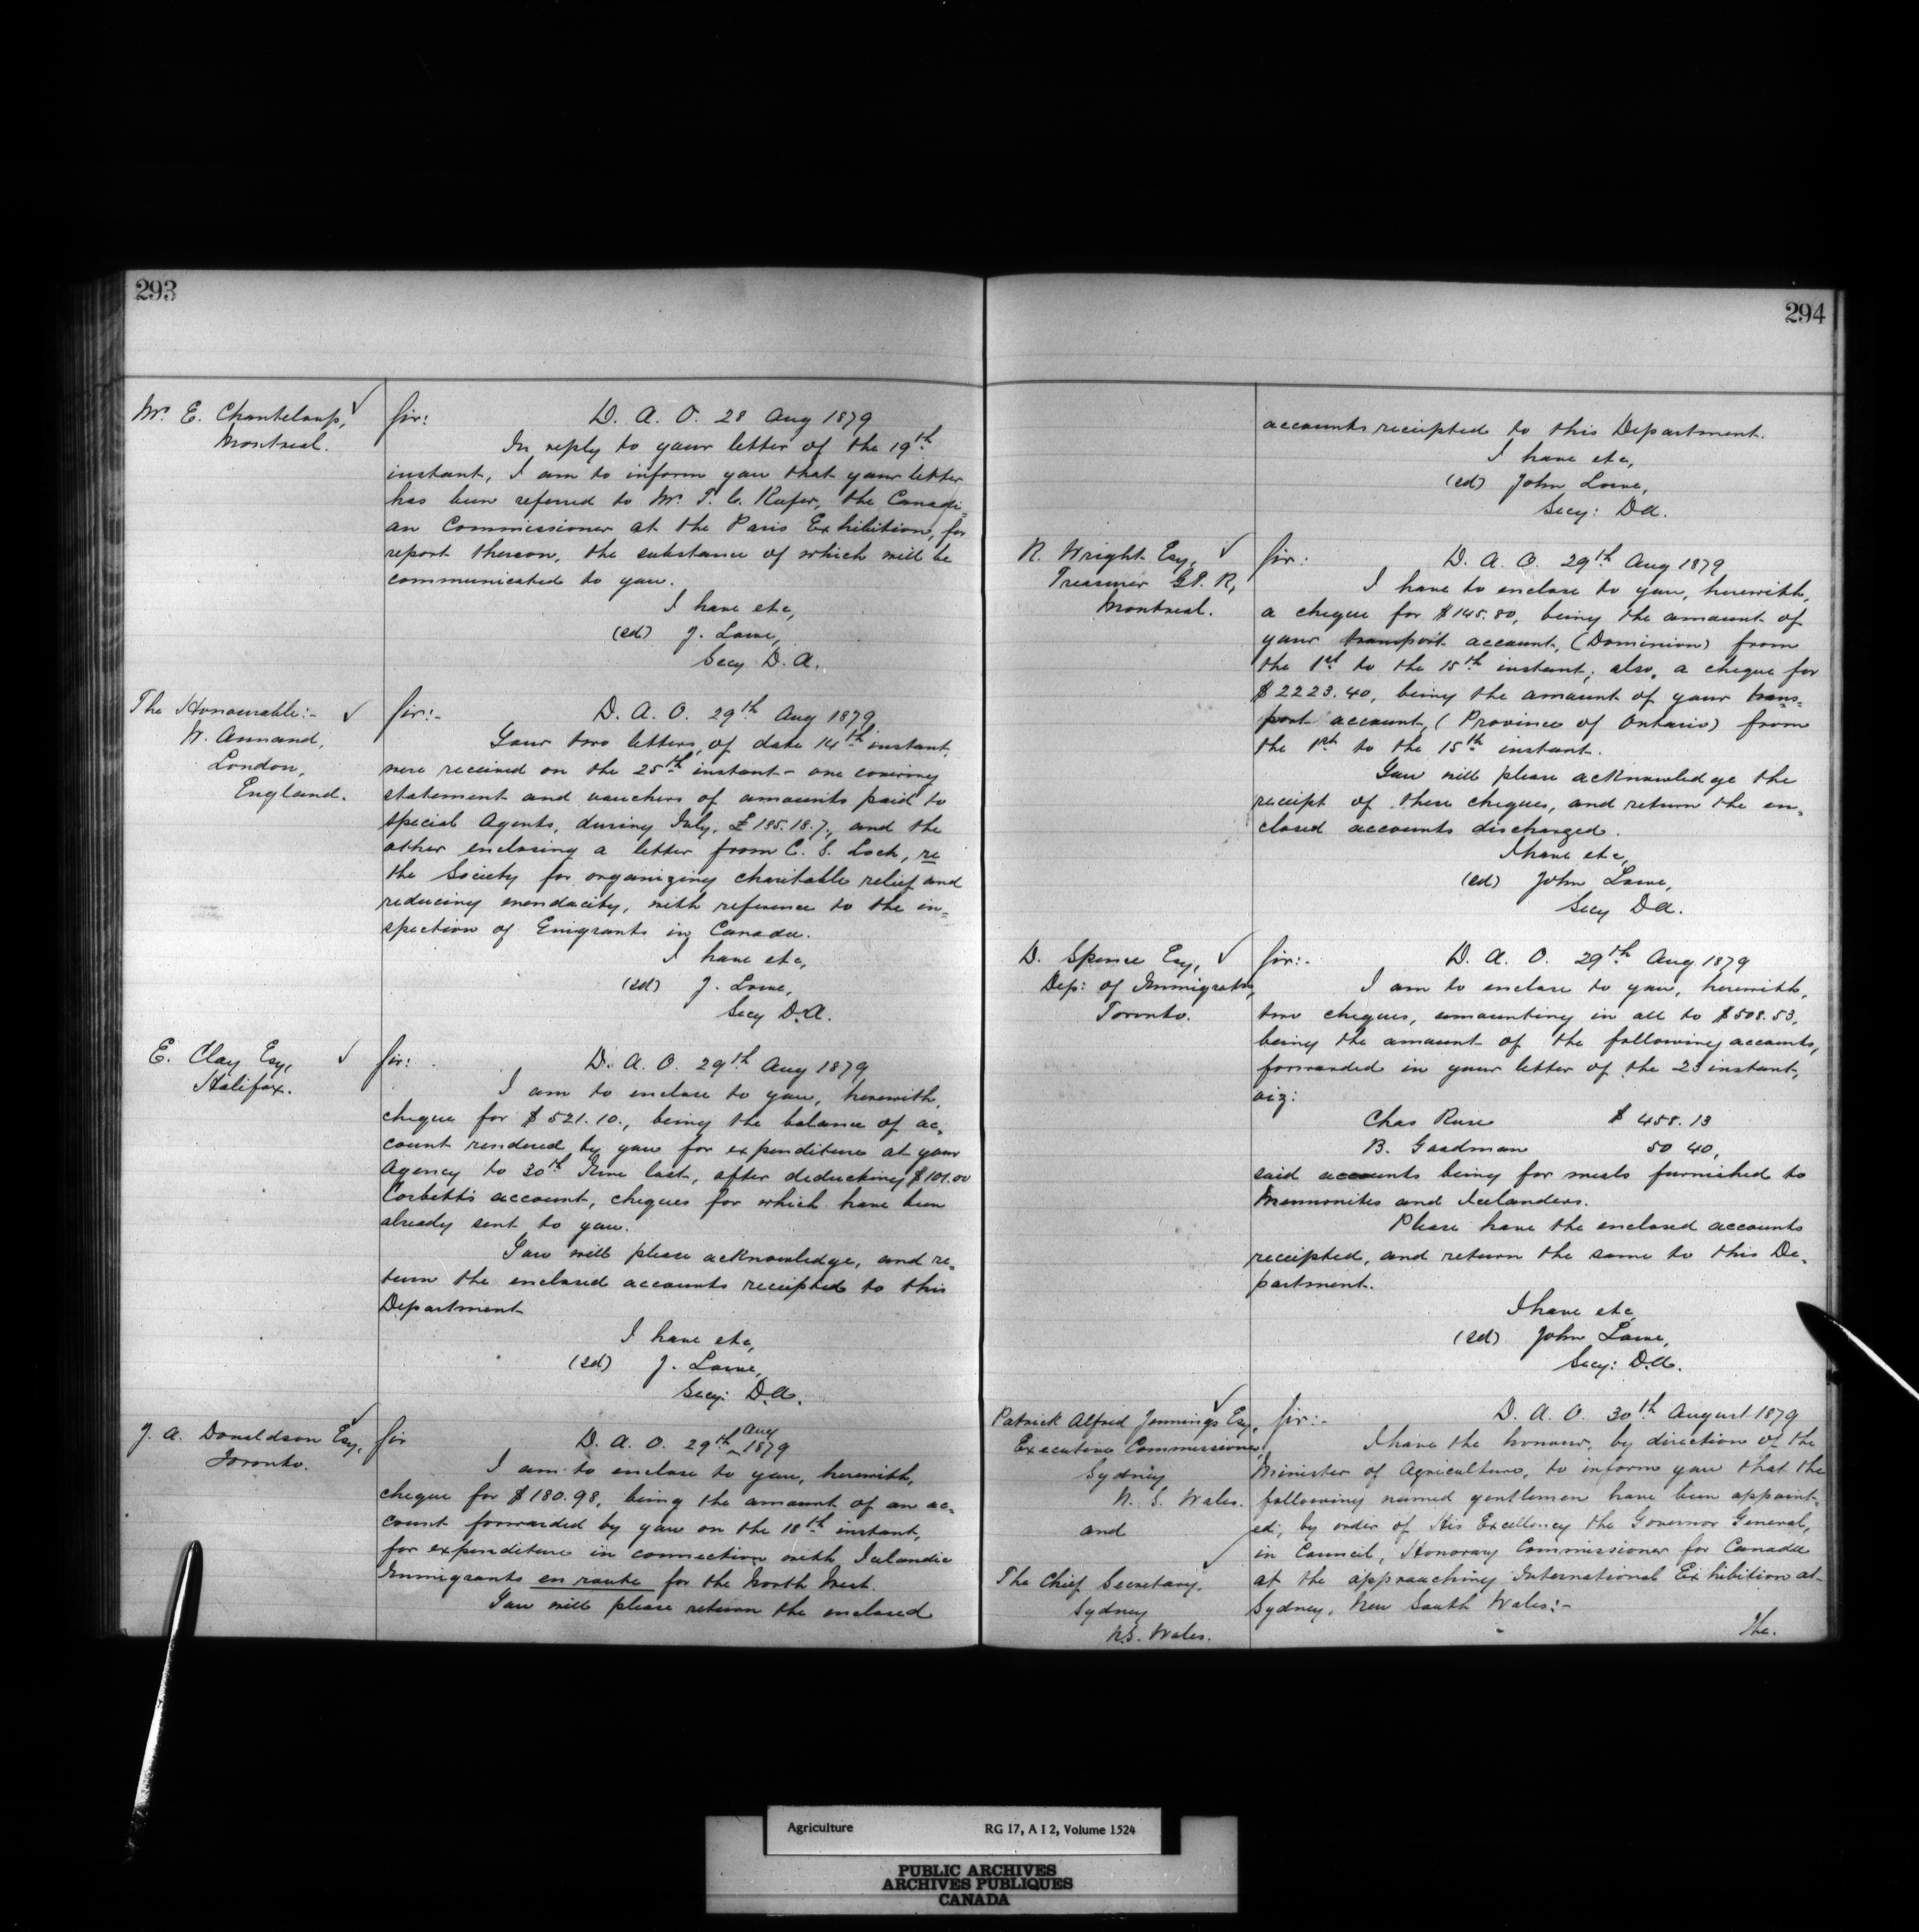 293
Mr. E. Chanteloup,
Montreal.
Sir: D. A. O. 28 Aug 1879
In reply to your letter of the 19th
instant, I am to inform you that your letter
has been referred to Mr. T. C. Keefer, the Canadi=
an Commissioner at the Paris Exhibition, for
report thereon, the substance of which will be
communicated to you.
I have etc,
(sd) J. Lowe,
Secy D. A.
The Honourable:-
W. Annand,
London,
England.
Sir:- D. A. O. 29th Aug 1879
Your two letters, of date 14th instant
were received on the 25th instant - one covering
statement and vouchers of amounts paid to
special Agents, during July, £195.18.7, and the
other enclosing a letter from C. S. Loch, re
the Society for organizing charitable relief and
reducing mendacity, with reference to the in=
spection of Emigrants in Canada.
I have etc,
(sd) J. Lowe,
Secy D.A.
E. Clay Esq,
Halifax.
Sir: D. A. O. 29th Aug 1879
I am to enclose to you, herewith,
cheque for $521.10., being the balance of ac=
count rendered by you for expenditure at your
Agency to 30th June last, after deducting $101.00
Corbett's account, cheques for which have been
already sent to you.
You will please acknowledge, and re=
turn the enclosed accounts receipted to this
Department
I have etc,
(sd) J. Lowe,
Secy: D.A.
J. A. Donaldson Esq,
Toronto.
Sir D. A. O. 29th Aug 1879
I am to enclose to you, herewith,
cheque for $180.98, being the amount of an ac=
count forwarded by you on the 18th instant,
for expenditure in connection with Icelandic
Immigrants en route for the North West.
You will please return the enclosed
294
accounts receipted to this Department.
I have etc,
(sd) John Lowe,
Secy: DA.
R. Wright Esq,
Treasurer G.T. R,
Montreal.
Sir: D. A. O. 29th Aug 1879
I have to enclose to you, herewith,
a cheque for $145.80, being the amount of
your transport account, (Dominion) from
the 1st to the 15th instant; also, a cheque for
$2223.40, being the amount of your trans=
port account, (Province of Ontario) from
the 1st to the 15th instant.
You will please acknowledge the
receipt of these cheques, and return the en=
closed accounts discharged.
I have etc,
(sd) John Lowe,
Secy DA.
D. Spence Esq,
Dep: of Immigration,
Toronto.
Sir:- D. A. O. 29th Aug 1879
I am to enclose to you, herewith,
two cheques, amounting in all to $508.53,
being the amount of the following accounts,
forwarded in your letter of the 23 instant,
viz:
Chas Ruse $ 458.13
B. Goodman 50 40,
said accounts being for meals furnished to
Mennonites and Icelanders.
Please have the enclosed accounts
receipted, and return the same to this De=
partment.
I have etc,
(sd) John Lowe,
Secy: D.A.
Patrick Alfred Jennings Esq,
Executive Commissioner,
Sydney
N. S. Wales.
and
The Chief Secretary,
Sydney
N.S. Wales.
Sir:- D. A. O. 30th August 1879
I have the honour, by direction of the
Minister of Agriculture, to inform you that the
following named gentlemen have been appoint=
ed, by order of His Excellency the Governor General,
in Council, Honorary Commissioner for Canada
at the approaching International Exhibition at
Sydney, New South Wales:-
The.
Agriculture RG 17, A I 2, Volume 1524
PUBLIC ARCHIVES
ARCHIVES PUBLIQUES
CANADA